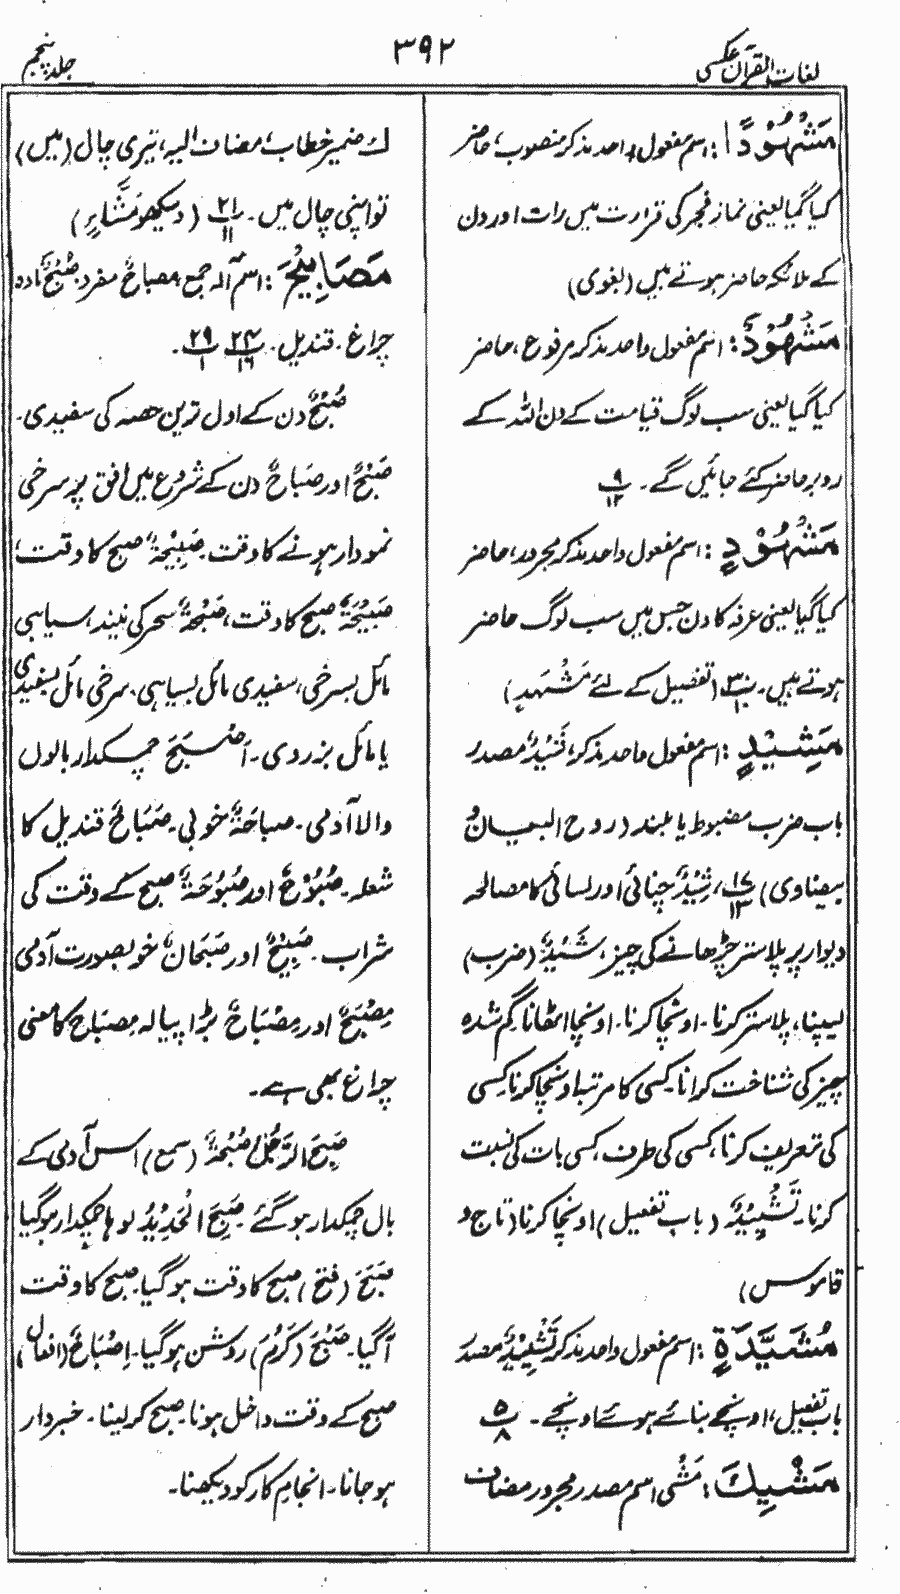 لغات القرآن عکسی
۳۹۲
جلد پنجم
مَشْهُوْدًا: اسم مفعول واحد مذکر منصوب، حاضر
کیا گیا یعنی نماز فجر کی قرارت میں رات اور دن
کے ملائکہ حاضر ہوتے ہیں (بغوی)
مَشْهُوْدٌ: اسم مفعول واحد مذکر مرفوع، حاضر
کیا گیا یعنی سب لوگ قیامت کے دن اللہ کے
روبرو حاضر کئے جائیں گے۔ ۹/۱۲
مَشْهُوْدٍ: اسم مفعول واحد مذکر مجرور، حاضر
کیا گیا یعنی عرفہ کا دن جس میں سب لوگ حاضر
ہوتے ہیں۔ ۳۰/۱۰ (تفصیل کے لئے مَشْهَدِ)
مَشِيْدٍ: اسم مفعول واحد مذکر، شَيْدٌ مصدر
باب ضرب مضبوط یا بلند (روح البیان و
بیضاوی) ۱۷/۱۳، شِيْدٌ چنائی اور لسائی کا مصالحہ
دیوار پر پلاستر چڑھانے کی چیز، شَيْدٌ (ضرب)
لیپنا، پلاستر کرنا۔ اونچا کرنا۔ اونچا اٹھانا گم شدہ
چیز کی شناخت کرانا۔ کسی کا مرتبہ اونچا کرنا کسی
کی تعریف کرنا، کسی کی طرف، کسی بات کی نسبت
کرنا۔ تَشْيِيْدٌ (باب تفعیل) اونچا کرنا (تاج و
قاموس)
مُشَيَّدَةٍ: اسم مفعول واحد مذکر تَشْيِيْدٌ مصدر
باب تفعیل، اونچے بنائے ہوئے اونچے۔ ۵/۸
مَشْيِكَ: مَشْيٌ اسم مصدر مجرور مضاف
ك ضمیر خطاب، مضاف الیہ، تیری چال (میں)
تو اپنی چال میں۔ ۲۱/۱۱ (دیکھو مَشَّاءٍ)
مَصَابِيْحَ: اسم آلہ جمع مصباحٌ مفرد، صُبْحٌ مادہ
چراغ۔ قندیل۔ ۲۴/۱۶ ۲۹/۱۔
صُبْحٌ دن کے اول ترین حصہ کی سفیدی۔
صُبْحٌ اور صَبَاحٌ دن کے شروع میں افق پر سرخی
نمودار ہونے کا وقت۔ صَبِيْحَةٌ صبح کا وقت،
صَبِيْحَةٌ صبح کا وقت، صُبْحَةٌ سحر کی نیند، سیاہی
مائل بسرخی، سفیدی مائل بسیاہی۔ سرخی مائل بسفیدی
یا مائل بزردی۔ اَصْبَحَ چمکدار بالوں
والا آدمی۔ صباحَةٌ خوبی۔ صَبَاحٌ قندیل کا
شعلہ۔ صَبُوْحٌ اور صَبُوْحَةٌ صبح کے وقت کی
شراب۔ صَبِيْحٌ اور صَبْحَانٌ خوبصورت آدمی
مِصْبَحٌ اور مِصْبَاحٌ بڑا پیالہ مِصْبَاحٌ کا معنی
چراغ بھی ہے۔
صَبِحَ الرَّجُلُ صُبْحَةً (سمع) اس آدمی کے
بال چمکدار ہو گئے۔ صَبِحَ الْحَدِيْدُ لوہا چمکدار ہو گیا
صَبَحَ (فتح) صبح کا وقت ہو گیا۔ صبح کا وقت
آ گیا۔ صَبُحَ (کَرُمَ) روشن ہو گیا۔ اِصْبَاحٌ (افعال)
صبح کے وقت داخل ہونا۔ صبح کر لینا۔ خبردار
ہو جانا۔ انجام کار کو دیکھنا۔